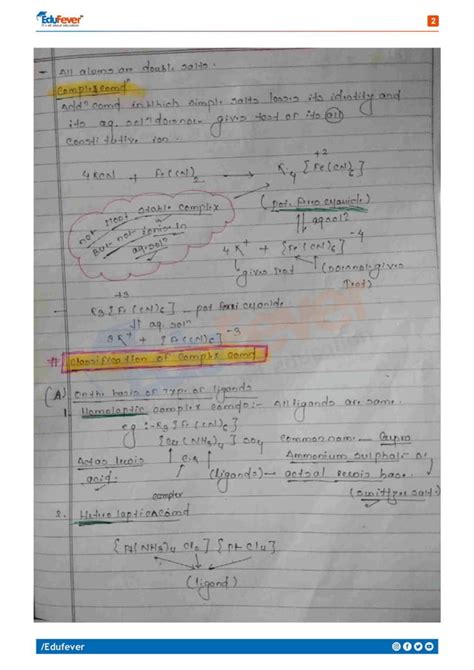 EduFever
2
- All alums are double salts.
Complex comd^n
Add^n comd in which simple salts losses its identity and
its aq. sol^n doesnot gives test of its all
constitutive ion.
4KCN + Fe(CN)2 → K4 [Fe(CN)6]
+2
(pot. ferro cyanide)
not most stable complex
But not ionise in
aq. sol^n
⇅ aq sol^n
4K+ + [Fe(CN)6]-4
(gives test) (Doesnot gives
Test)
+3
- K3 [Fe(CN)6] - pot ferri cyanide.
⇅ aq. sol^n
3K+ + [Fe(CN)6]-3
# Classification of complex comd
(A) On the basis of Type of ligands
1. Homoleptic complex comds:- All ligands are same.
eg :- K3 [Fe(CN)6]
[Cu(NH3)4] SO4 Common name - Cupro
Ammonium sulphate
Act as lewis
acid.
(ligands) - act as lewis base.
complex
2. Heteroleptic comd
[Pt(NH3)4 Cl2] [Pt Cl4]
(ligand)
/Edufever